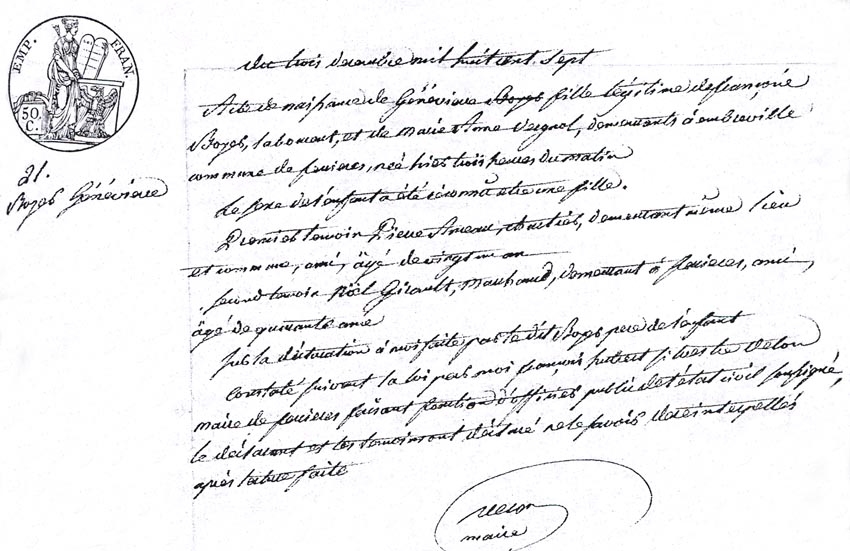 EMP. FRAN.
50.
C.
21.
Boyes Généviève
du trois décembre mil huit cent sept
Acte de naissance de Généviève Boyes fille légitime de françois
Boyes, laboureur, et de Marie Anne demeurants à
commune de née hier trois heures du matin
Le sexe de l'enfant a été réconnu etre une fille.
Premier temoin Pierre demeurant même lieu
et commune, ami, âgé de vingt un an
second temoin Nöel Girault, Marchand, demeurant à ami,
âgé de quarante ans
sur la déclaration à moi faite par le dit Boyes pere de l'enfant
Constaté suivant la loi par moi françois hubert silvestre velon
maire de faisant fonction d'officier public de l'état civil soussigné,
le déclarant et les temoins ont déclaré ne le savoir de ce interpellés
après lecture faite
velon
maire